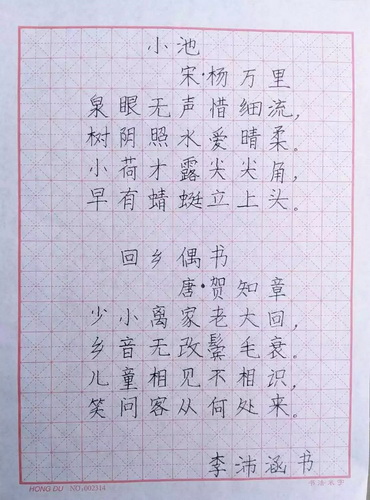 小池
宋·杨万里
泉眼无声惜细流,
树阴照水爱晴柔。
小荷才露尖尖角,
早有蜻蜓立上头。
回乡偶书
唐·贺知章
少小离家老大回,
乡音无改鬓毛衰。
儿童相见不相识,
笑问客从何处来。
李沛涵书
HONG DU NO.002314